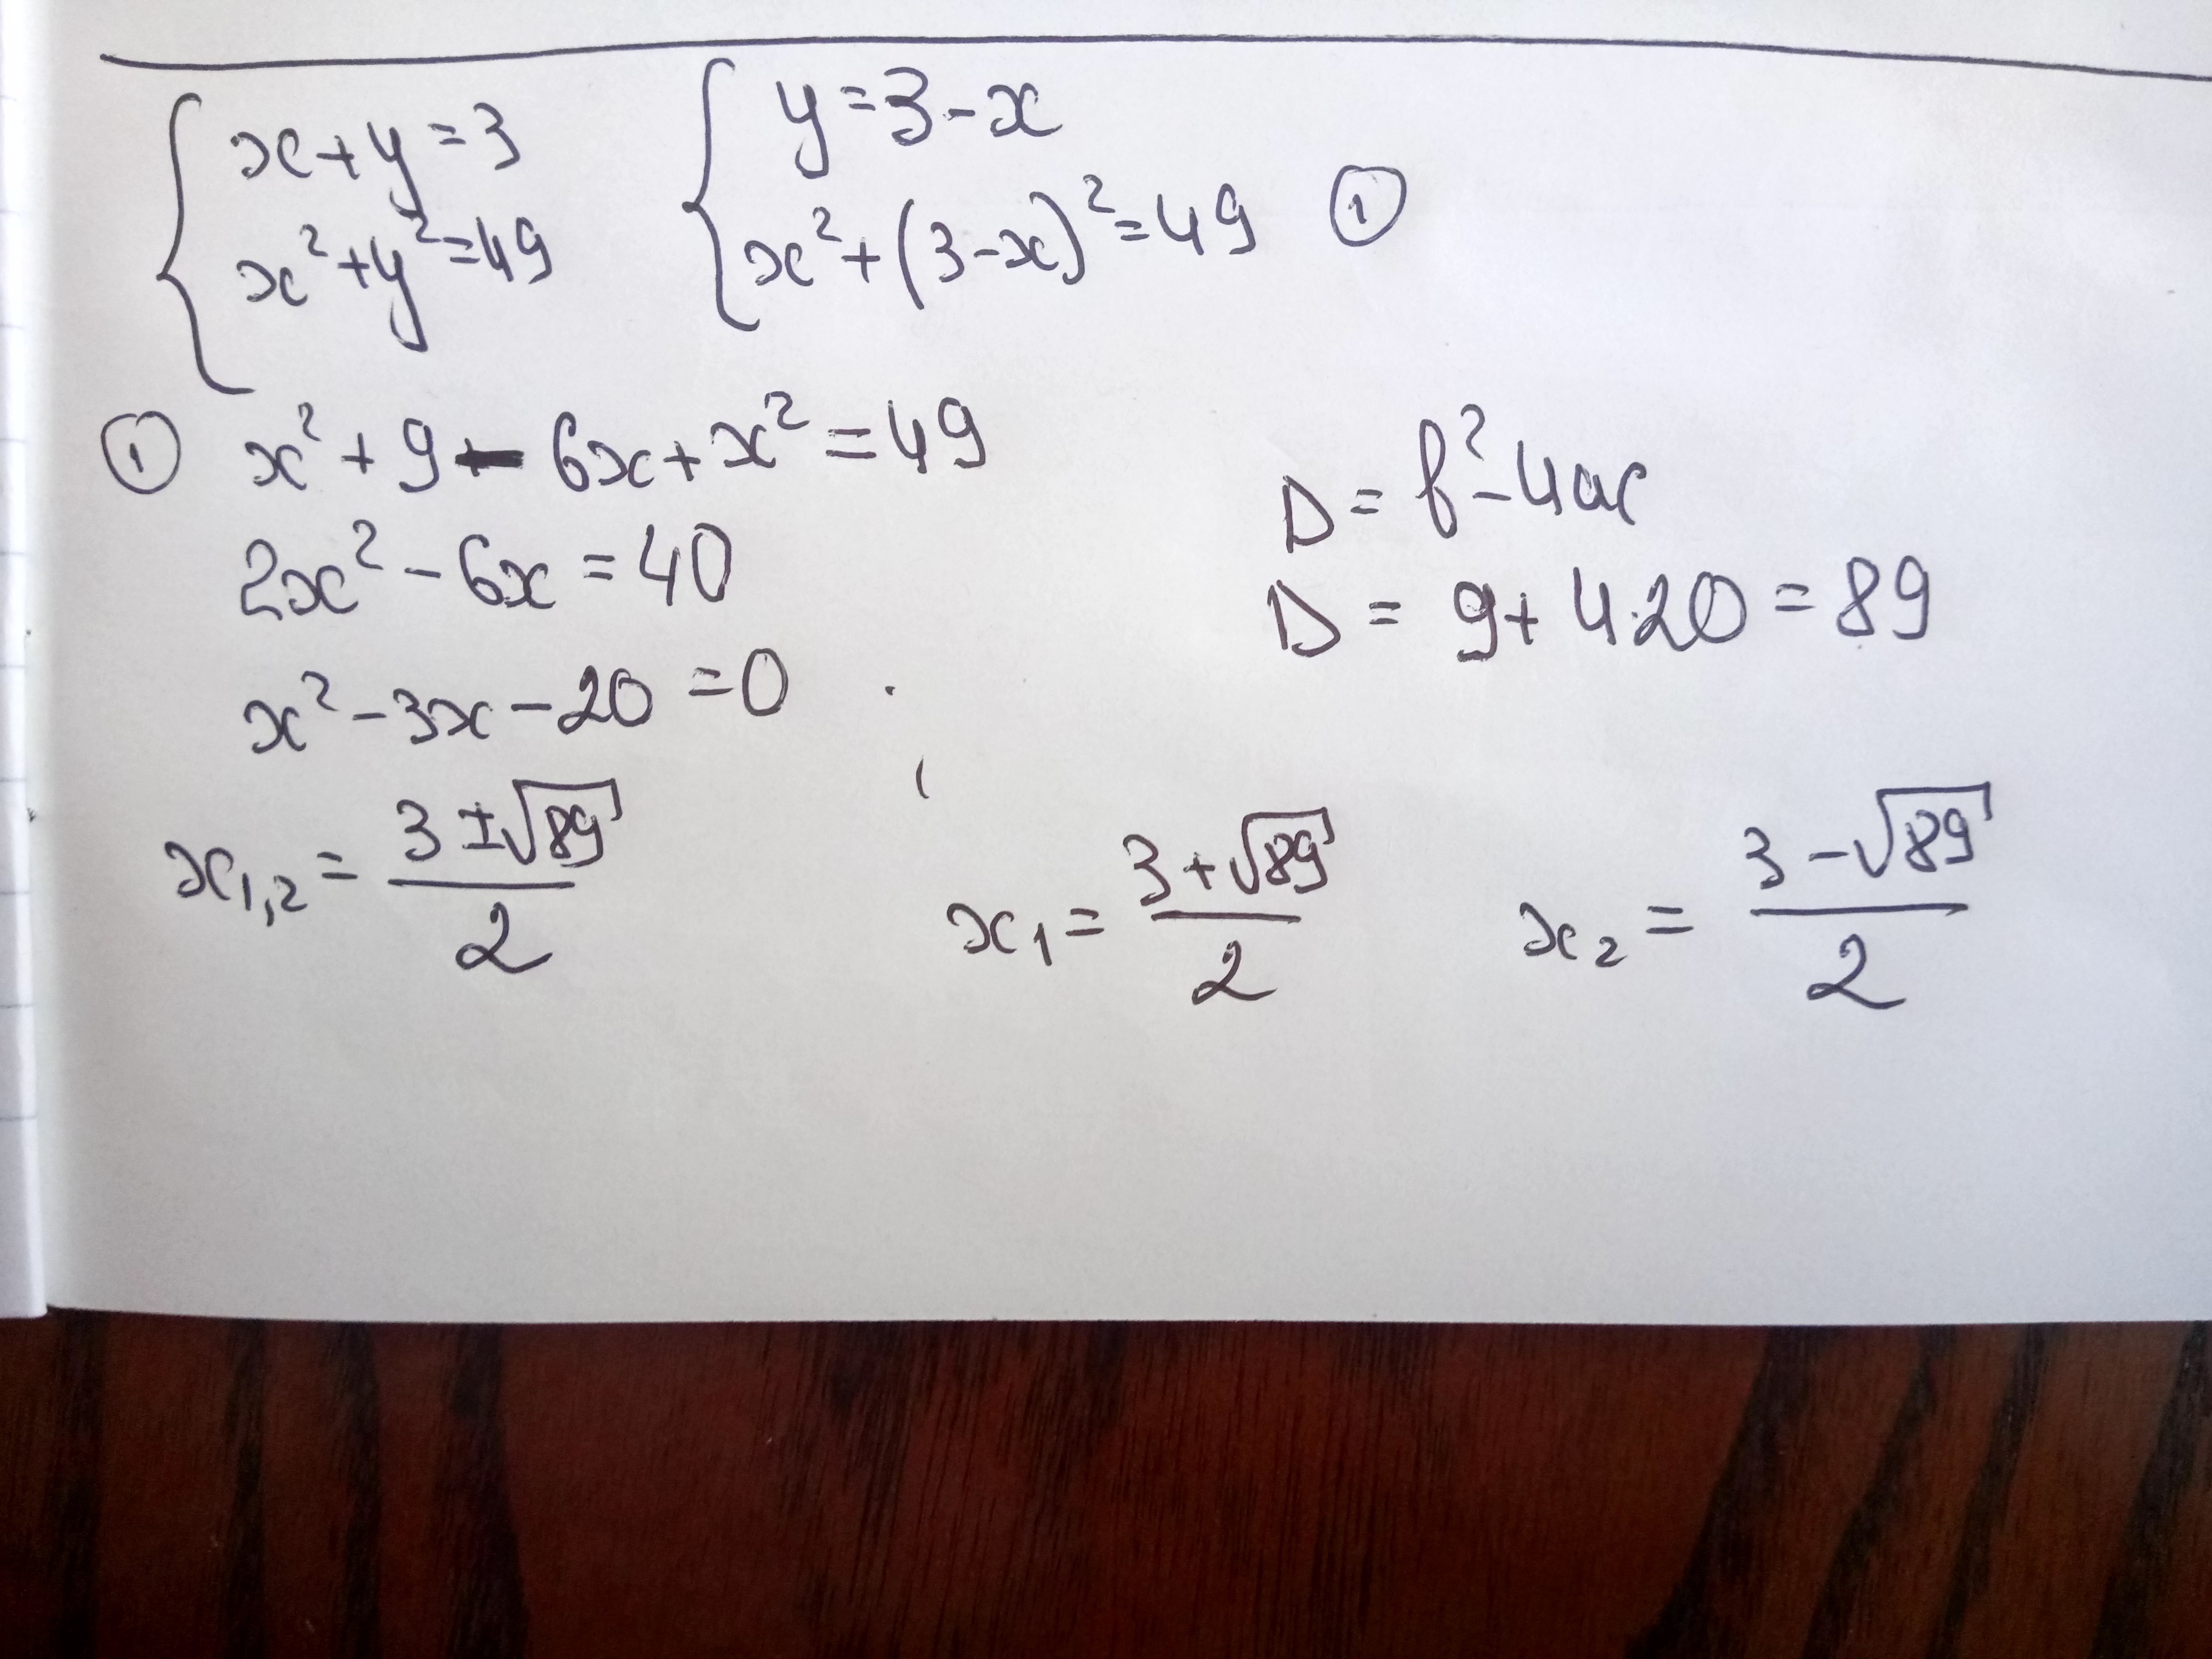 { x+y=3 { y=3-x
x²+y²=49 x²+(3-x)²=49 ①
① x²+9-6x+x²=49
2x²-6x=40
x²-3x-20=0
D=b²-4ac
D=9+4·20=89
x₁,₂=(3±√89)/2 x₁=(3+√89)/2 x₂=(3-√89)/2